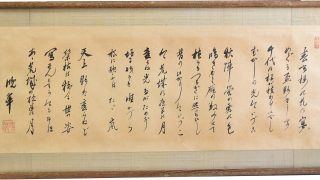 春高楼の花の宴
めぐる盃影さして
千代の松が枝わけ出でし
むかしの光いまいづこ
秋陣営の霜の色
鳴き行く雁の数見せて
植うるつるぎに照りそひし
昔の光今いづこ
今荒城の夜半の月
変らぬ光たがためぞ
垣に残るはただかつら
松に歌ふはただ嵐
天上影は変らねど
栄枯は移る世の姿
写さんとてか今も尚
あゝ荒城の夜半の月
晩翠